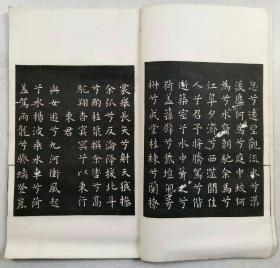 忽兮遠望觀流水兮潺
湲麋何為兮庭中蛟何
為兮水裔朝馳余馬兮
江皋夕濟兮西澨聞佳
人兮召予將騰駕兮偕
逝築室兮水中葺之兮
荷蓋蓀壁兮紫壇
兮成堂桂棟兮蘭橑
裳舉長矢兮射天狼操
余弧兮反淪降援北斗
兮酌桂漿撰余轡兮高
駝翔杳冥冥兮以東行
東君
與女遊兮九河衝風起
兮水揚波乘水車兮荷
蓋駕兩龍兮驂螭登崑